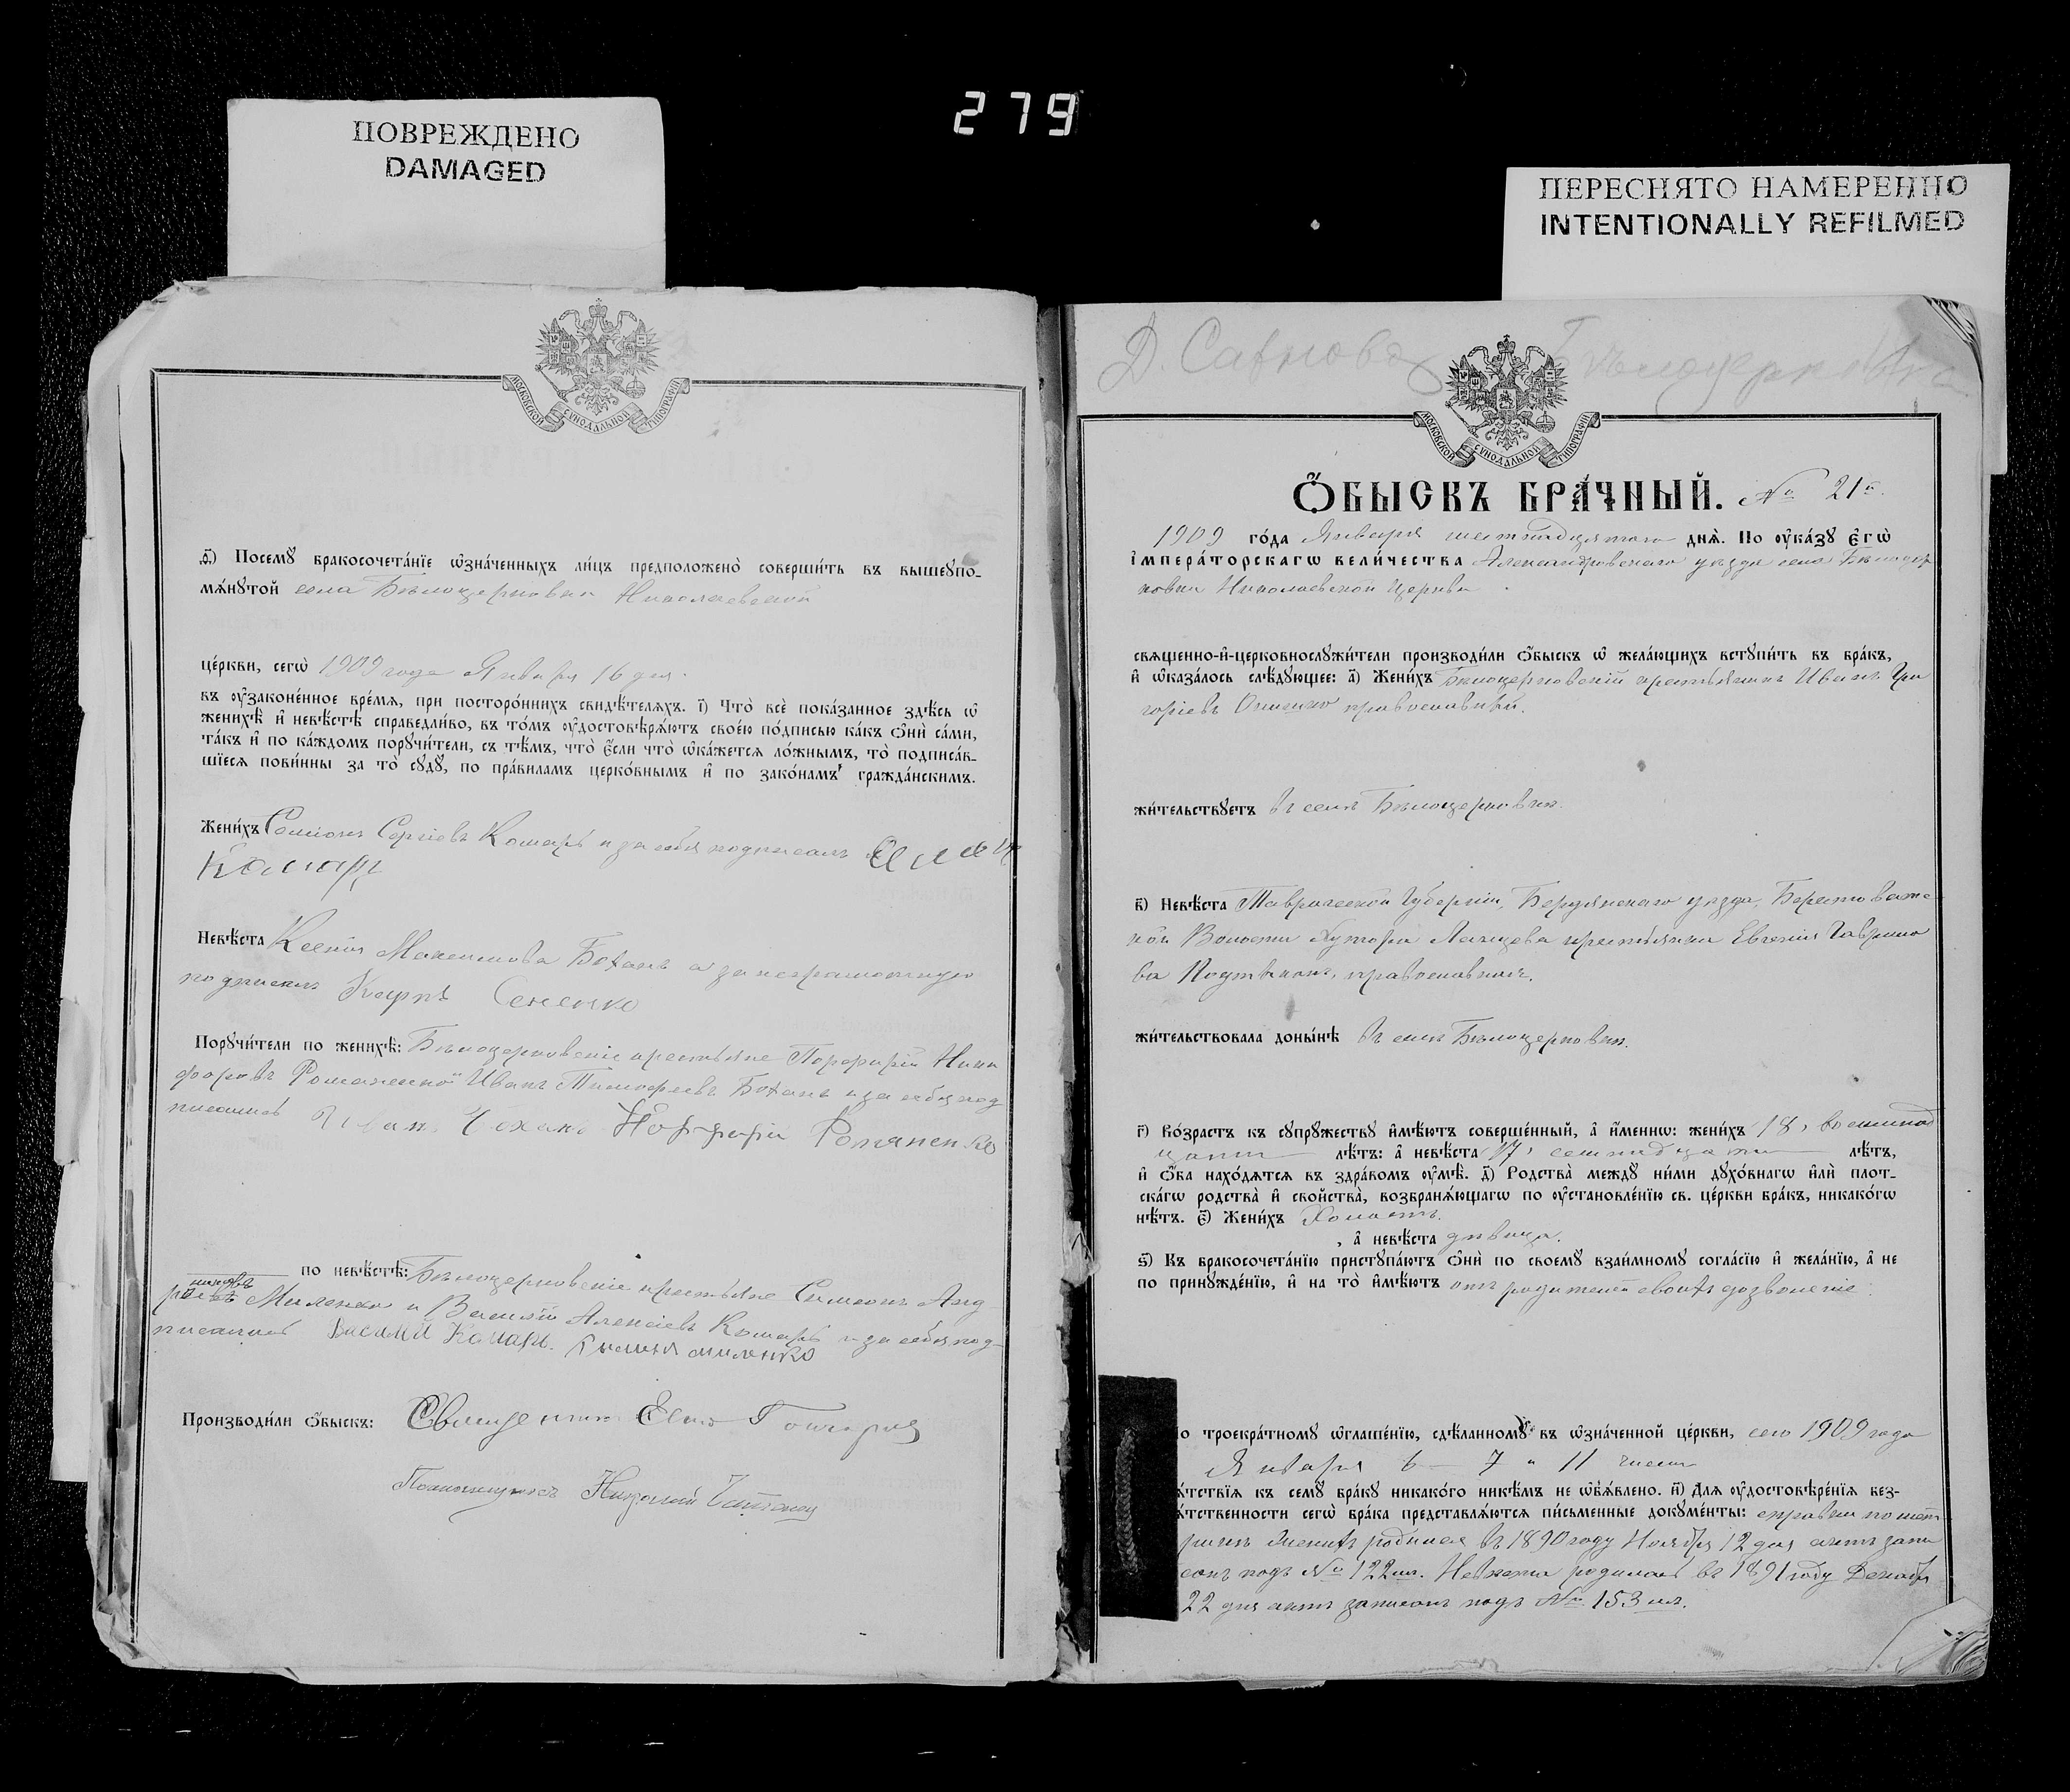 279
ПОВРЕЖДЕНО
DAMAGED
ПЕРЕСНЯТО НАМЕРЕННО
INTENTIONALLY REFILMED
МОСКОВСКОЙ СѴНОДАЛЬНОЙ ТИПОГРАФІИ
ѳ҃) Посемꙋ бракосочета́нїе ѡ҆зна́ченныхъ ли́цъ предположено̀ соверши́ть въ вышеꙋпо-
мѧ́нꙋтой села Бѣлоцерковки Николаевской
це́ркви, сегѡ̀ 1909 года Января 16 дня.
въ ᲂу҆законе́нное вре́мѧ, при посторо́ннихъ свидѣ́телѧхъ. і҃) Что̀ всѐ пока́занное здѣ́сь ѡ҆
женихѣ̀ и҆ невѣ́стѣ справедли́во, въ то́мъ ᲂу҆достовѣрѧ́ютъ свое́ю по́дписью ка́къ ѻ҆нѝ са́ми,
та́къ и҆ по ка́ждомъ порꙋчи́тели, съ тѣ́мъ, что̀ є҆́сли что̀ ѡ҆ка́жетсѧ ло́жнымъ, то̀ подписа́в-
шїесѧ пови́нны за то̀ сꙋдꙋ̀, по пра́виламъ церко́внымъ и҆ по зако́намъ гражда́нскимъ.
Жени́хъ Симеонъ Сергіевъ Комаръ и за себя подписалъ
Комаръ
Невѣ́ста Ксенія Максимова Боханъ а за неграмотную
подписалъ Карпъ Сененко
Порꙋчи́тели по женихѣ̀: Бѣлоцерковскіе крестьяне Порфирій Ники
форовъ Романенко Иванъ Тимофеевъ Боханъ и за себя под
писались Иванъ Боханъ Порфирій Романенко
по невѣ́стѣ: Бѣлоцерковскіе крестьяне Симеонъ Анд
Миленко и Василій Алексіевъ Комаръ и за себя под-
писались Василій Комаръ. миленко
Производи́ли ѻ҆́быскъ: Священникъ
Псаломщикъ Николай
Д. Бѣлоцерковка
МОСКОВСКОЙ СѴНОДАЛЬНОЙ ТИПОГРАФІИ
Ѻ҆́БЫСКЪ БРА́ЧНЫЙ. № 21й.
1909 го́да Января шестнадцатаго днѧ̀. По ᲂу҆ка́зꙋ є҆гѡ̀
і҆мпера́торскагѡ вели́чества Александровскаго уѣзда села Бѣлоцер
ковки Николаевской церкви
свѧщенно-и҆-церковнослꙋжи́тели производи́ли ѻ҆́быскъ ѡ҆ жела́ющихъ встꙋпи́ть въ бра́къ,
и҆ ѡ҆каза́лось слѣ́дꙋющее: а҃) Жени́хъ Бѣлоцерковскій крестьянинъ Иванъ Гри
горіевъ Онишко православный.
жи́тельствꙋетъ въ селѣ Бѣлоцерковкѣ.
в҃) Невѣ́ста Таврической Губерніи, Бердянскаго уѣзда, Берестоватс-
кой Волости хутора Лацева крестьянка Евгенія Гаврило
ва православная.
жи́тельствовала доны́нѣ въ селѣ Бѣлоцерковкѣ.
г҃) Во́зрастъ къ сꙋпрꙋ́жествꙋ и҆мѣ́ютъ соверше́нный, а҆ и҆́меннѡ: жени́хъ 18, восемнад
цати лѣ́тъ: а҆ невѣ́ста 17, семнадцати лѣ́тъ,
и҆ ѻ҆́ба нахо́дѧтсѧ въ здра́вомъ ᲂу҆мѣ̀. д҃) Родства̀ междꙋ̀ ни́ми дꙋхо́внагѡ и҆лѝ плот-
ска́гѡ родства̀ и҆ сво́йства̀, возбранѧ́ющагѡ по ᲂу҆становле́нїю св. це́ркви бра́къ, никако́гѡ
нѣ́тъ. є҃) Жени́хъ Холостъ.
, а҆ невѣ́ста дѣвица.
ѕ҃) Къ бракосочета́нїю пристꙋпа́ютъ ѻ҆нѝ по своемꙋ̀ взаи́мномꙋ согла́сїю и҆ жела́нїю, а҆ не
по принꙋжде́нїю, и҆ на то̀ и҆мѣ́ютъ отъ родителей своихъ дозволеніе.
о троекра́тномꙋ ѡ҆глаше́нїю, сдѣ́ланномꙋ въ ѡ҆зна́ченной це́ркви, сего 1909 года
Января 6 - 7 и 11 чиселъ
ѧ́тствїѧ къ семꙋ̀ бра́кꙋ никако́го никѣ́мъ не ѡ҆б̾ѧ́влено. и҃) Длѧ ᲂу҆достовѣре́нїѧ без-
ѧ́тственности сегѡ̀ бра́ка представлѧ́ютсѧ пи́сьменные докꙋме́нты: справки по мет
рикѣ Женихъ родился въ 1890 году Ноября 12 дня актъ запи
санъ подъ № 122мъ. Невѣста родилась въ 1891 году Декабря
22 дня актъ записанъ подъ № 153мъ.